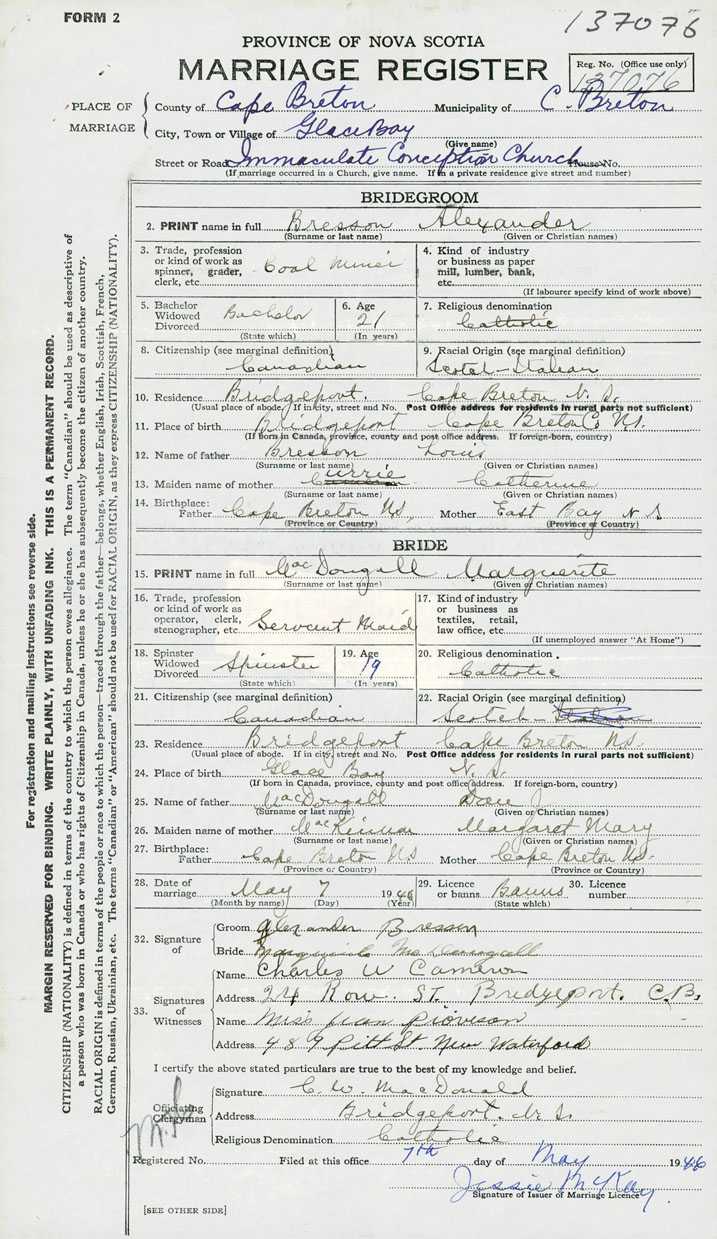 FORM 2
137076
PROVINCE OF NOVA SCOTIA
MARRIAGE REGISTER
Reg. No. (Office use only)
137076
PLACE OF MARRIAGE
County of Cape Breton Municipality of C. Breton
City, Town or Village of Glace Bay
(Give name)
Street or Road Immaculate Conception Church House No.
(If marriage occurred in a Church, give name. If in a private residence give street and number)
BRIDEGROOM
2. PRINT name in full Bresson Alexander
(Surname or last name) (Given or Christian names)
3. Trade, profession or kind of work as spinner, grader, clerk, etc. Coal Miner
4. Kind of industry or business as paper mill, lumber, bank, etc.
(If labourer specify kind of work above)
5. Bachelor Widowed Divorced Bachelor
(State which)
6. Age 21
(In years)
7. Religious denomination
Catholic
8. Citizenship (see marginal definition)
Canadian
9. Racial Origin (see marginal definition)
Scotch-Italian
10. Residence Bridgeport. Cape Breton N. S.
(Usual place of abode. If in city, street and No. Post Office address for residents in rural parts not sufficient)
11. Place of birth Bridgeport Cape Breton Co NS.
(If born in Canada, province, county and post office address. If foreign-born, country)
12. Name of father Bresson Louis
(Surname or last name) (Given or Christian names)
13. Maiden name of mother Currie Catherine
(Surname or last name) (Given or Christian names)
14. Birthplace: Father Cape Breton NS. Mother East Bay N S
(Province or Country) (Province or Country)
BRIDE
15. PRINT name in full MacDougall Marguerite
(Surname or last name) (Given or Christian names)
16. Trade, profession or kind of work as operator, clerk, stenographer, etc. Servent Maid
17. Kind of industry or business as textiles, retail, law office, etc.
(If unemployed answer "At Home")
18. Spinster Widowed Divorced Spinster
(State which)
19. Age 19
(In years)
20. Religious denomination.
Catholic
21. Citizenship (see marginal definition)
Canadian
22. Racial Origin (see marginal definition)
Scotch-Italian
23. Residence Bridgeport Cape Breton NS.
(Usual place of abode. If in city, street and No. Post Office address for residents in rural parts not sufficient)
24. Place of birth Glace Bay N. S.
(If born in Canada, province, county and post office address. If foreign-born, country)
25. Name of father MacDougall Dan J.
(Surname or last name) (Given or Christian names)
26. Maiden name of mother MacKinnon Margaret Mary
(Surname or last name) (Given or Christian names)
27. Birthplace: Father Cape Breton NS Mother Cape Breton NS.
(Province or Country) (Province or Country)
28. Date of marriage May 7 1946
(Month by name) (Day) (Year)
29. Licence or banns Banns
(State which)
30. Licence number
32. Signature of
Groom Alexander Bresson
Bride Marguerite MacDougall
33. Signatures of Witnesses
Name Charles W Cameron
Address 24 Row. ST. Bridgeport. C.B.
Name Miss Jean
Address 489 Pitt St. New Waterford
I certify the above stated particulars are true to the best of my knowledge and belief.
Officiating Clergyman
Signature C. W. MacDonald
Address Bridgeport. N. S.
Religious Denomination Catholic
Registered No. Filed at this office 7th day of May 1946
Jessie McKay
Signature of Issuer of Marriage Licence
[SEE OTHER SIDE]
For registration and mailing instructions see reverse side.
MARGIN RESERVED FOR BINDING. WRITE PLAINLY, WITH UNFADING INK. THIS IS A PERMANENT RECORD.
CITIZENSHIP (NATIONALITY) is defined in terms of the country to which the person owes allegiance. The term "Canadian" should be used as descriptive of
a person who was born in Canada or who has rights of Citizenship in Canada, unless he or she has subsequently become the citizen of another country.
RACIAL ORIGIN is defined in terms of the people or race to which the person—traced through the father—belongs, whether English, Irish, Scottish, French,
German, Russian, Ukrainian, etc. The terms "Canadian" or "American" should not be used for RACIAL ORIGIN, as they express CITIZENSHIP (NATIONALITY).